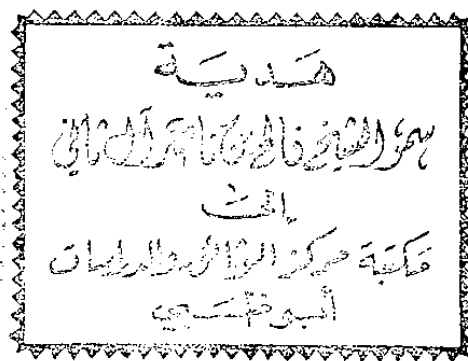 هدية
سمو الشيخ فالح بن ناصر آل ثاني
إلى
مكتبة مركز الوثائق والدراسات
أبو ظبي